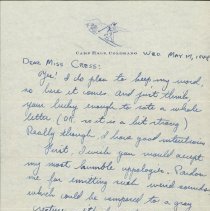 CAMP HALE, COLORADO
WED. MAY 17, 1944
DEAR MISS CRESS:
Yes! I do plan to keep my word,
so here it comes and just think,
your lucky enough to rate a whole
letta (OK so it is a bit strong)
Really though, I have good intentions
First, I wish you would accept
my most humble appologies. Pardon
me for omitting such word somehow
which could be compared to a gray